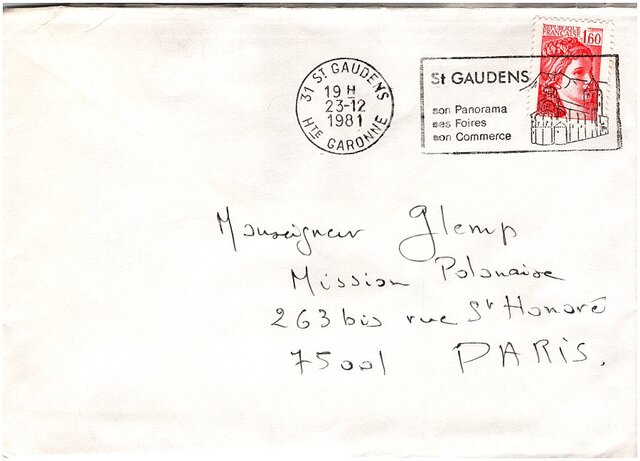 RÉPUBLIQUE FRANÇAISE
1,60
31 St GAUDENS
19 H
23-12
1981
HTE GARONNE
St GAUDENS
son Panorama
ses Foires
son Commerce
Monseigneur Glemp
Mission Polonaise
263 bis rue St Honoré
75001 PARIS.